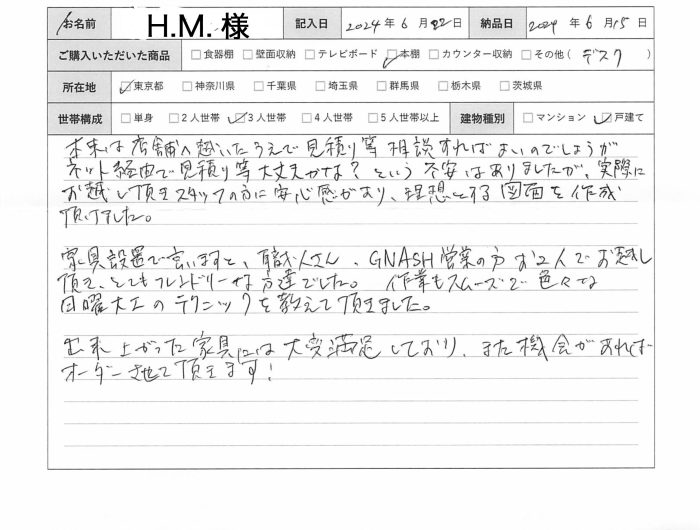 お名前 H.M. 様 記入日 2024 年 6 月 22 日 納品日 2024 年 6 月 15 日
ご購入いただいた商品 □食器棚 □壁面収納 □テレビボード ☑本棚 □カウンター収納 □その他( デスク )
所在地 ☑東京都 □神奈川県 □千葉県 □埼玉県 □群馬県 □栃木県 □茨城県
世帯構成 □単身 □2人世帯 ☑3人世帯 □4人世帯 □5人世帯以上 建物種別 □マンション ☑戸建て
本来は店舗へ赴いたうえで見積り等相談すればよいのでしょうが
ネット経由で見積り等大丈夫かな?という不安はありましたが、実際に
お越し頂きスタッフの方に安心感があり、理想とする図面を作成
頂けました。
家具設置で言いますと、職人さん、GNASH営業の方お2人でお越し
頂き、とてもフレンドリーな方達でした。作業もスムーズで色々な
日曜大工のテクニックを教えて頂きました。
出来上がった家具には大変満足しており、また機会があれば
オーダーさせて頂きます!